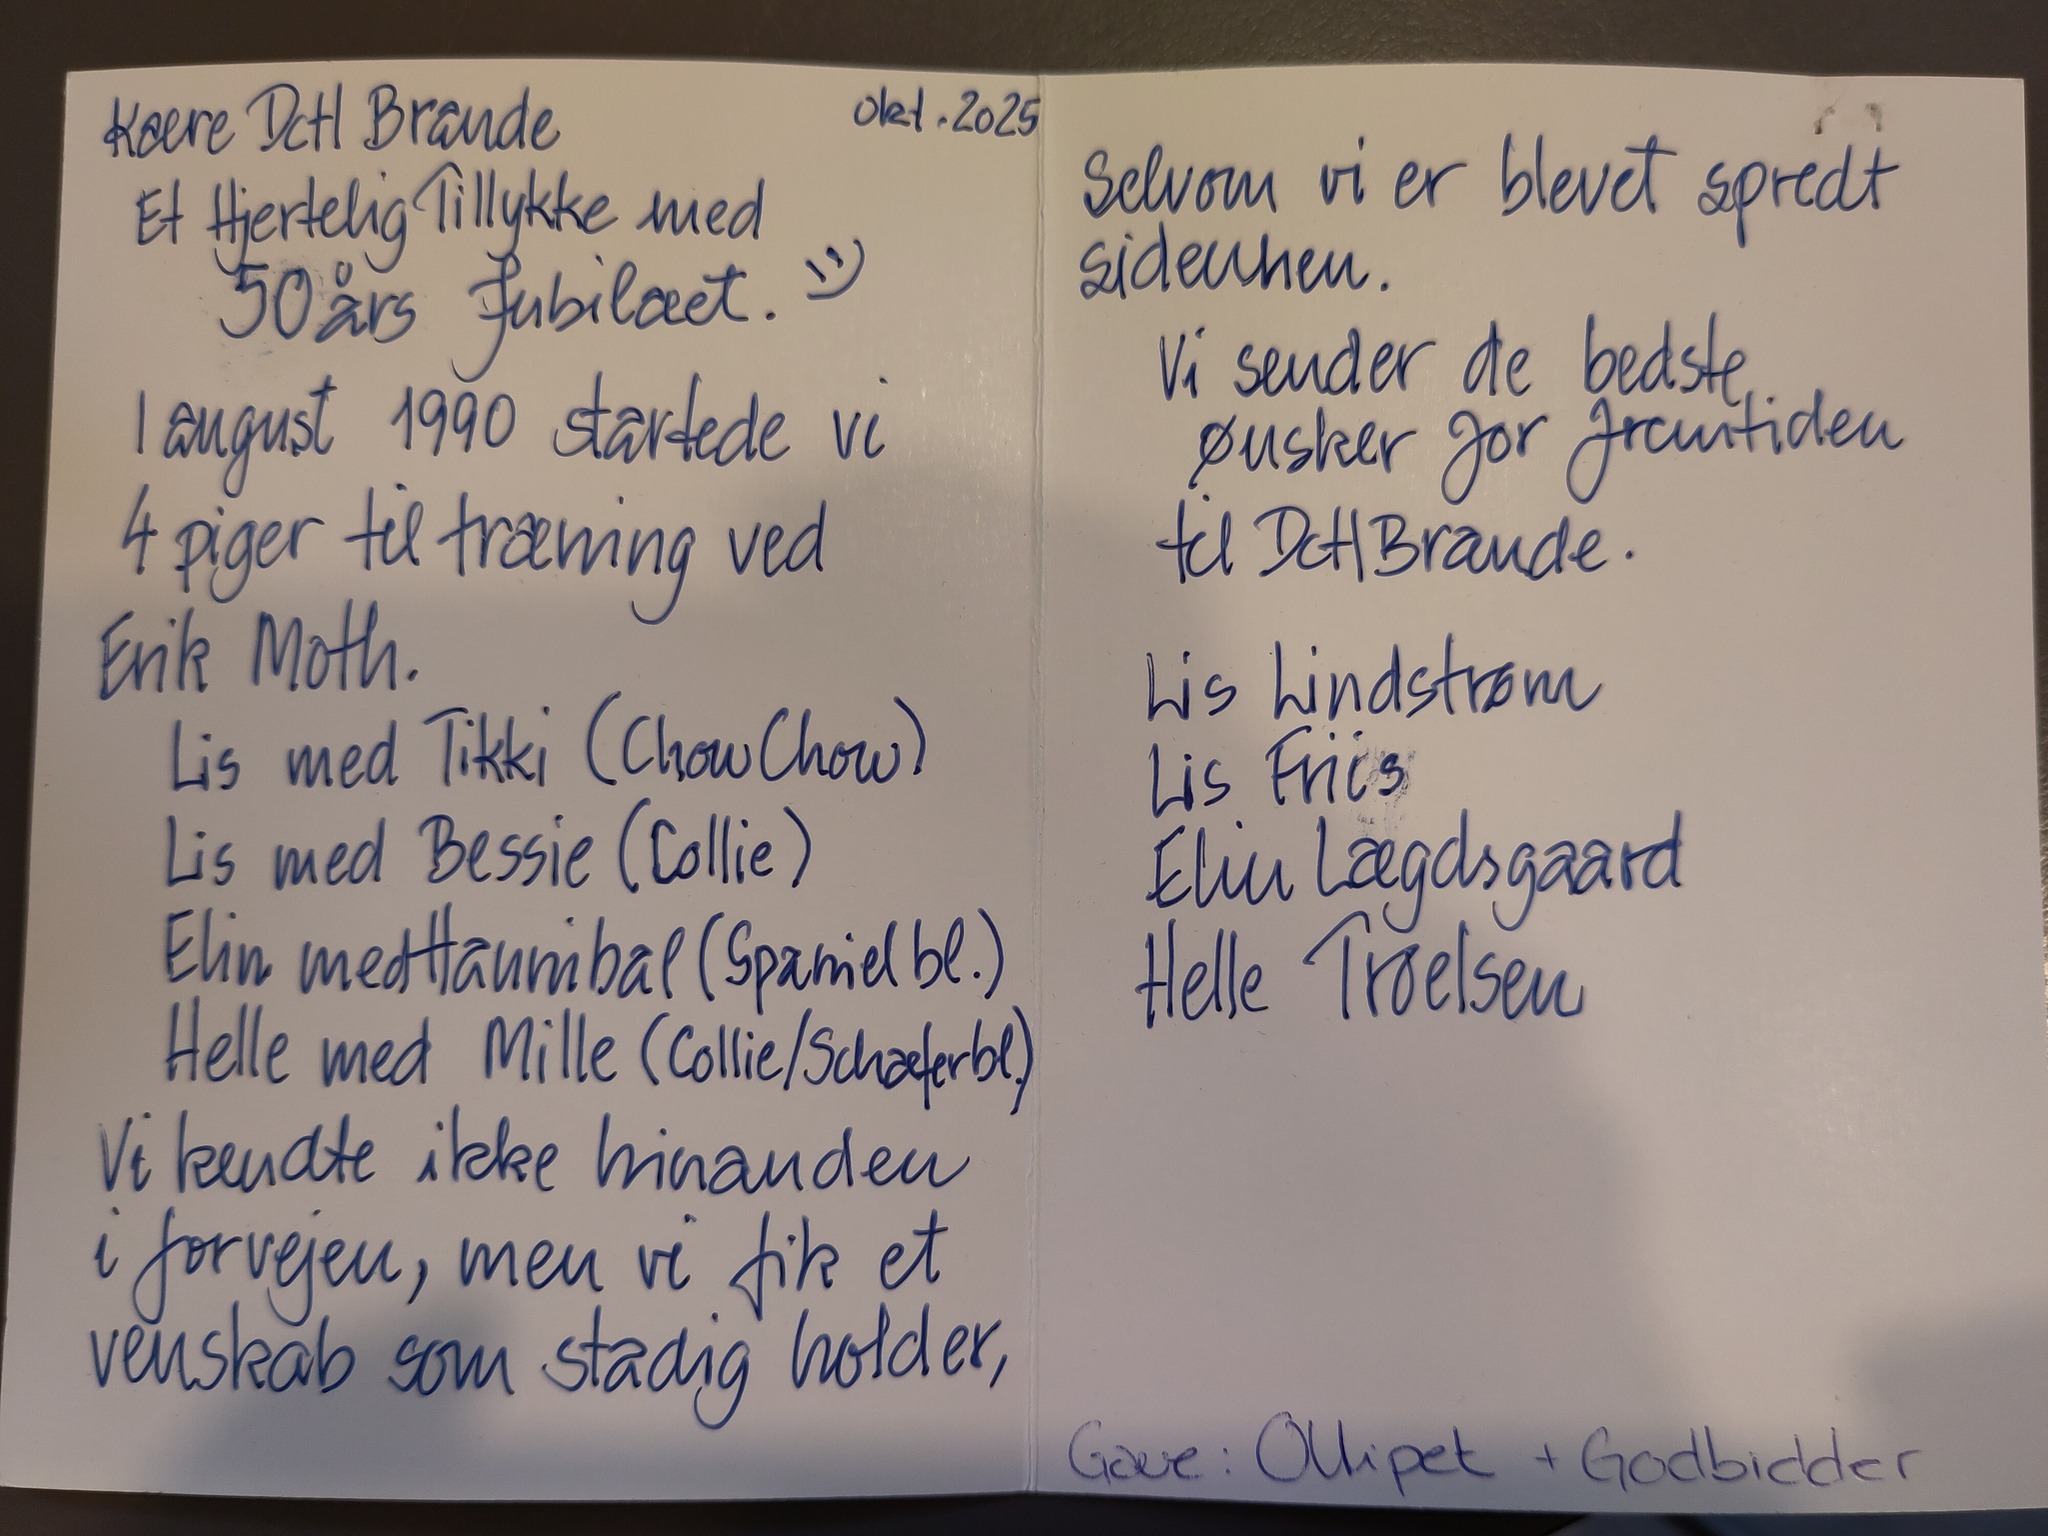 Kære DcH Brande
okt. 2025
Et Hjertelig Tillykke med
50 års Jubilæet. :)
1 august 1990 startede vi
4 piger til træning ved
Erik Moth.
Lis med Tikki (ChowChow)
Lis med Bessie (Collie)
Elin med Hannibal (Spaniel bl.)
Helle med Mille (Collie/Schæferbl.)
Vi kendte ikke hinanden
i forvejen, men vi fik et
venskab som stadig holder,
Selvom vi er blevet spredt
sidenhen.
Vi sender de bedste
ønsker for fremtiden
til DcH Brande.
Lis Lindstrøm
Lis Friis
Elin Lægdsgaard
Helle Troelsen
Gave: Ollipet + Godbidder